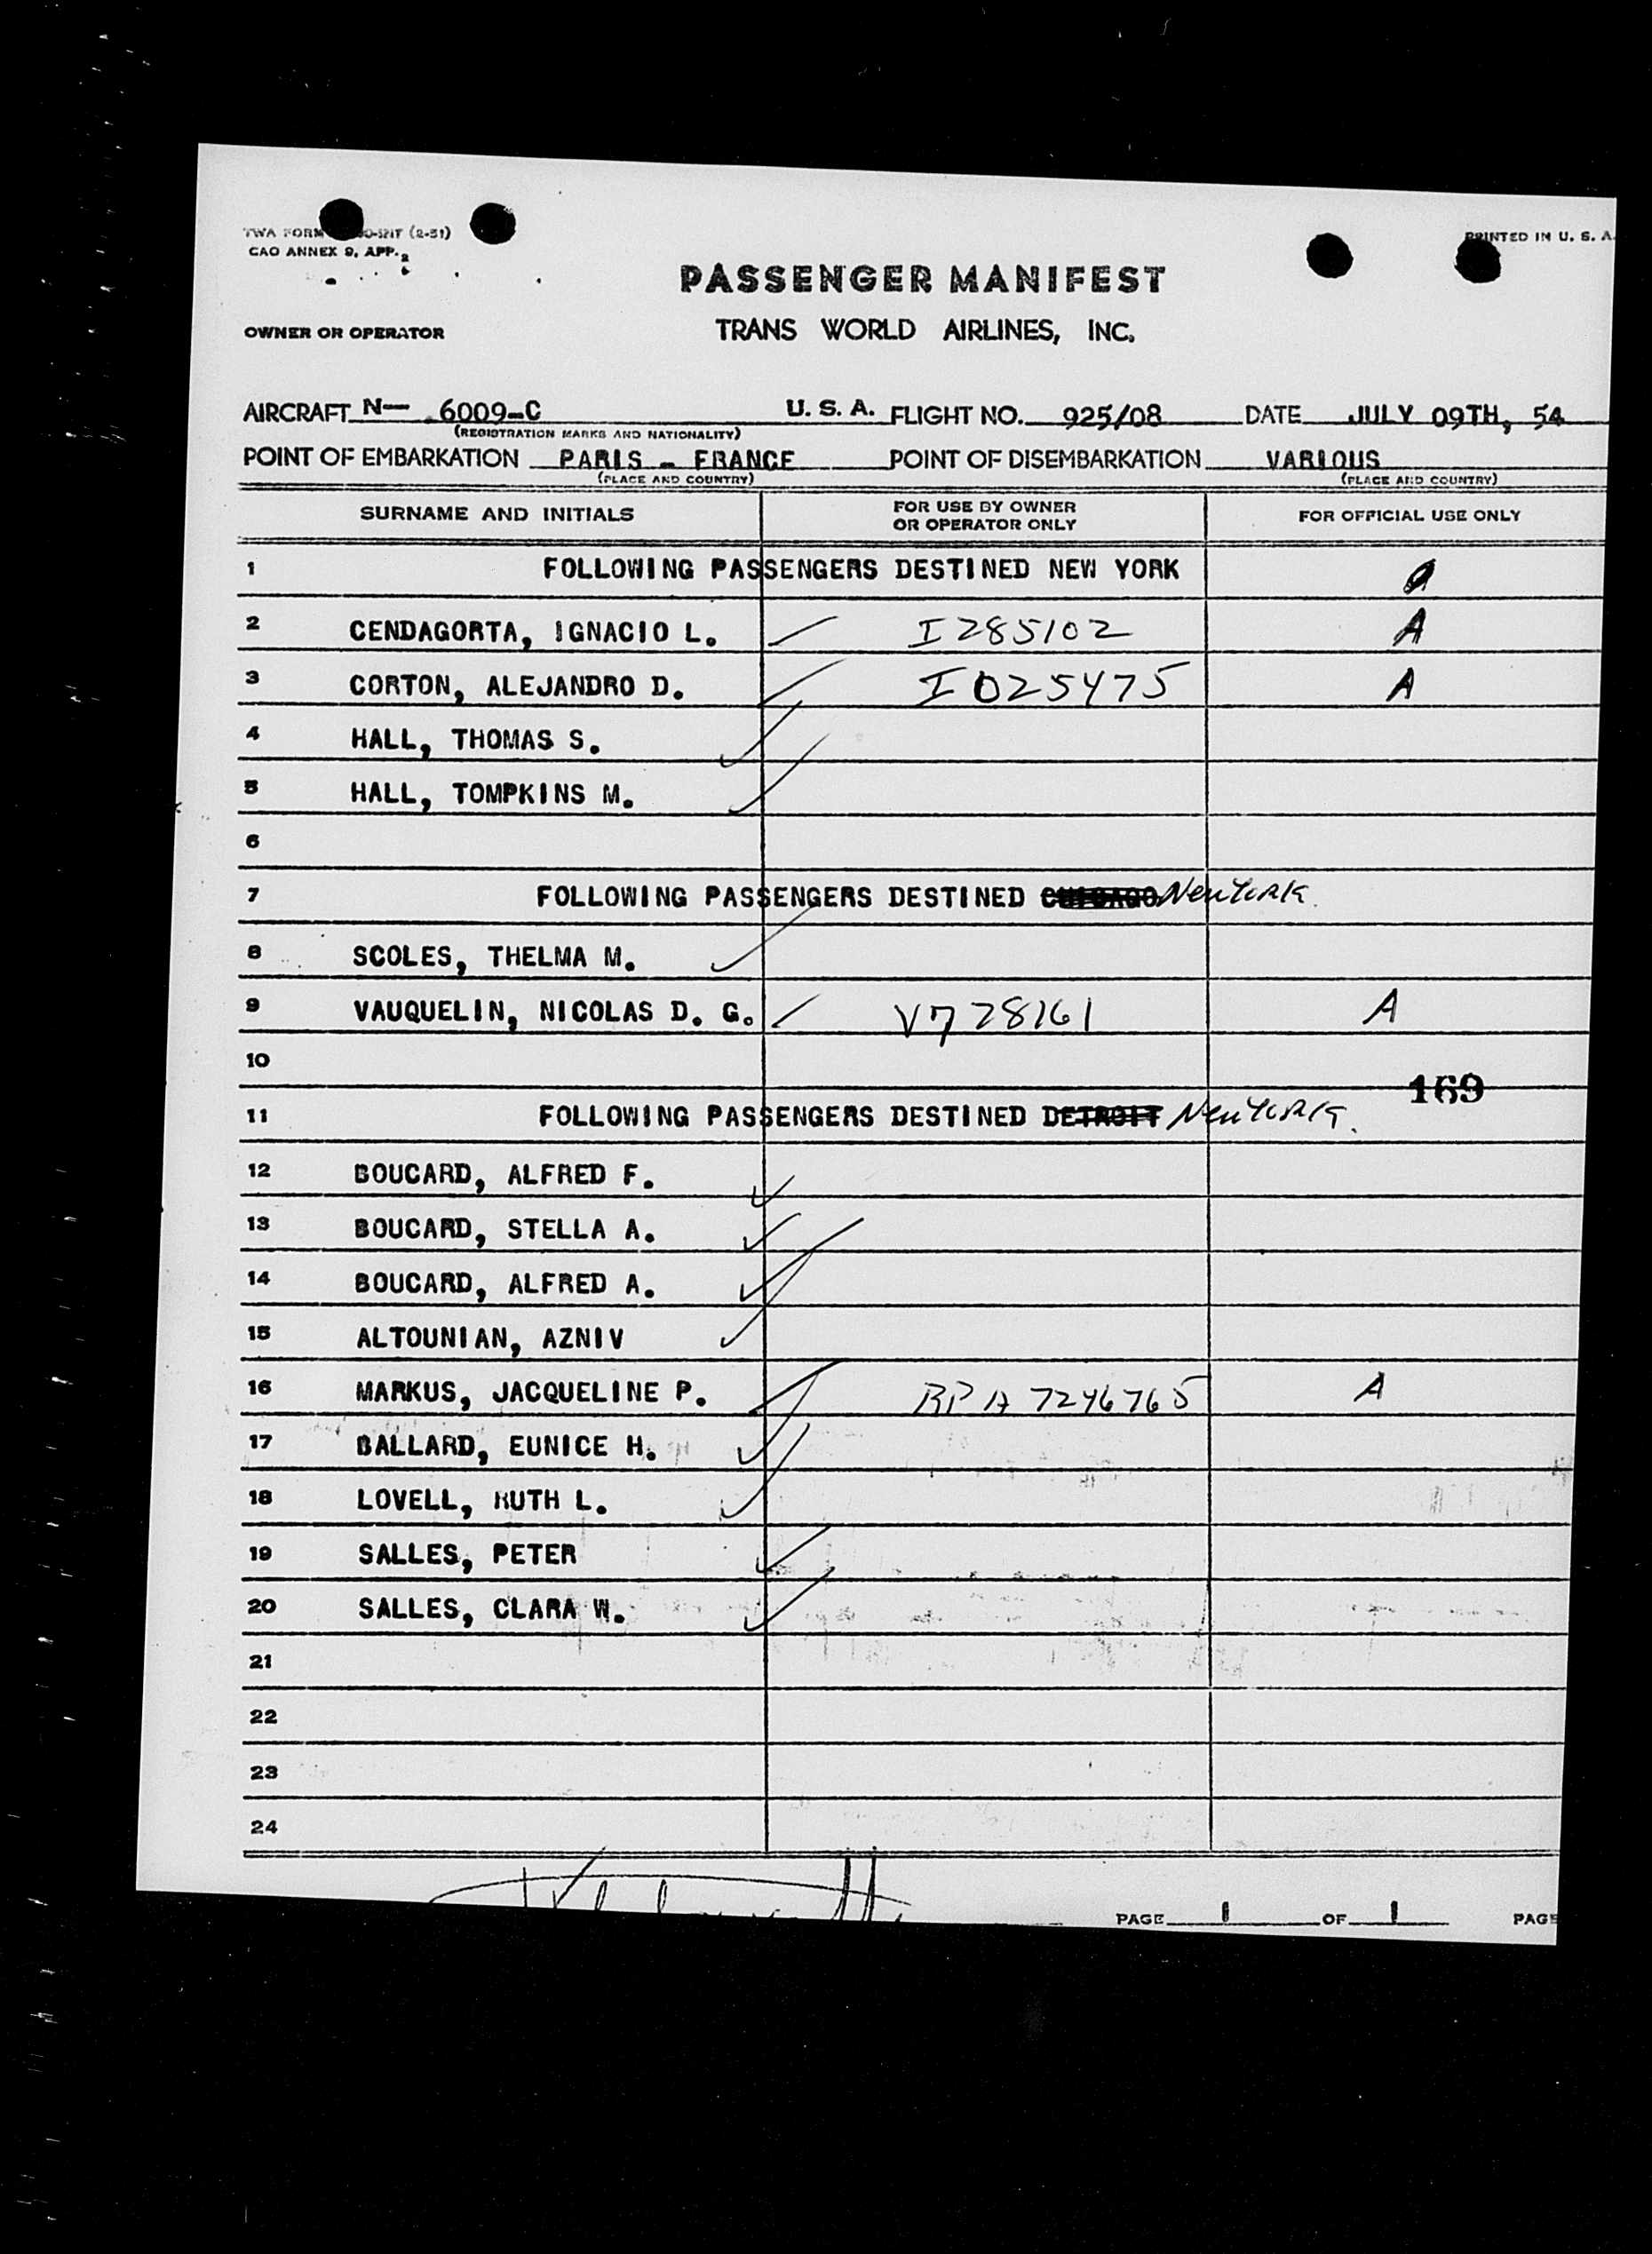 TWA FORM (2-51)
CAO ANNEX 9, APP. 2
PRINTED IN U. S. A.
PASSENGER MANIFEST
OWNER OR OPERATOR TRANS WORLD AIRLINES, INC.
AIRCRAFT N— 6009-C U. S. A. FLIGHT NO. 925/08 DATE JULY 09TH, 54
(REGISTRATION MARKS AND NATIONALITY)
POINT OF EMBARKATION PARIS - FRANCE POINT OF DISEMBARKATION VARIOUS
(PLACE AND COUNTRY) (PLACE AND COUNTRY)
SURNAME AND INITIALS FOR USE BY OWNER OR OPERATOR ONLY FOR OFFICIAL USE ONLY
1 FOLLOWING PASSENGERS DESTINED NEW YORK
2 CENDAGORTA, IGNACIO L. I285102 A
3 CORTON, ALEJANDRO D. I025475 A
4 HALL, THOMAS S.
5 HALL, TOMPKINS M.
6
7 FOLLOWING PASSENGERS DESTINED CHICAGO New York
8 SCOLES, THELMA M.
9 VAUQUELIN, NICOLAS D. G. V728161 A
10
169
11 FOLLOWING PASSENGERS DESTINED DETROIT New York.
12 BOUCARD, ALFRED F.
13 BOUCARD, STELLA A.
14 BOUCARD, ALFRED A.
15 ALTOUNIAN, AZNIV
16 MARKUS, JACQUELINE P. RP A 7246765 A
17 BALLARD, EUNICE H.
18 LOVELL, RUTH L.
19 SALLES, PETER
20 SALLES, CLARA W.
21
22
23
24
PAGE 1 OF 1 PAGE